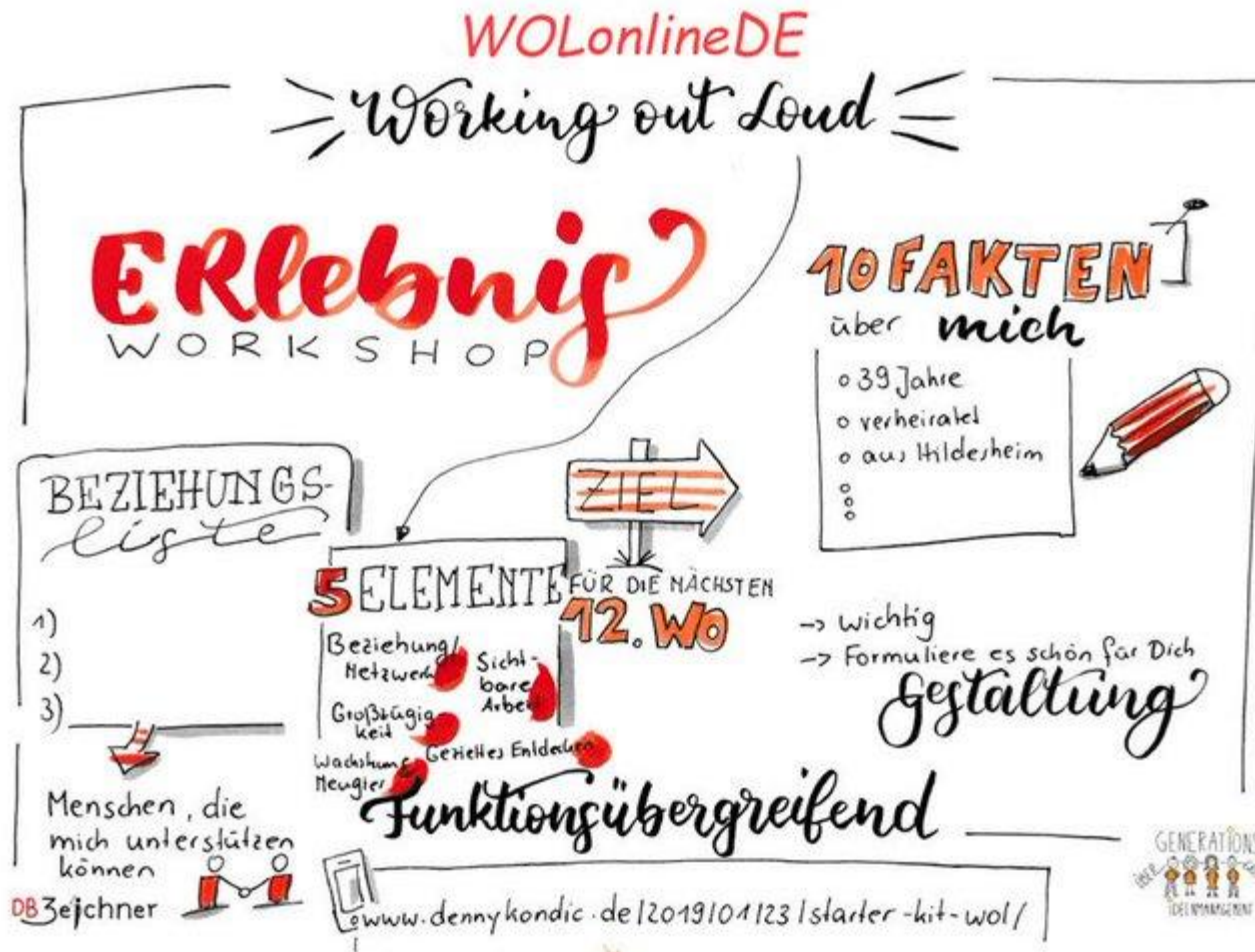 WOLonlineDE
Working out Loud
ERlebnis
WORKSHOP
10 FAKTEN
über mich
39 Jahre
verheiratet
aus Hildesheim
BEZIEHUNGS-
liste
1)
2)
3)
Menschen, die
mich unterstützen
können
5 ELEMENTE
Beziehung/
Netzwerk
Sicht-
bare
Arbeit
Großzügig-
keit
Gezieltes Entdecken
Wachstum
Neugier
ZIEL
FÜR DIE NÄCHSTEN
12. WO
-> wichtig
-> Formuliere es schön für Dich
Gestaltung
Funktionsübergreifend
DB Zeichner
www.dennykondic.de/2019/01/23/starter-kit-wol/
GENERATIONS
ÜBER
IDEENMANAGEMENT